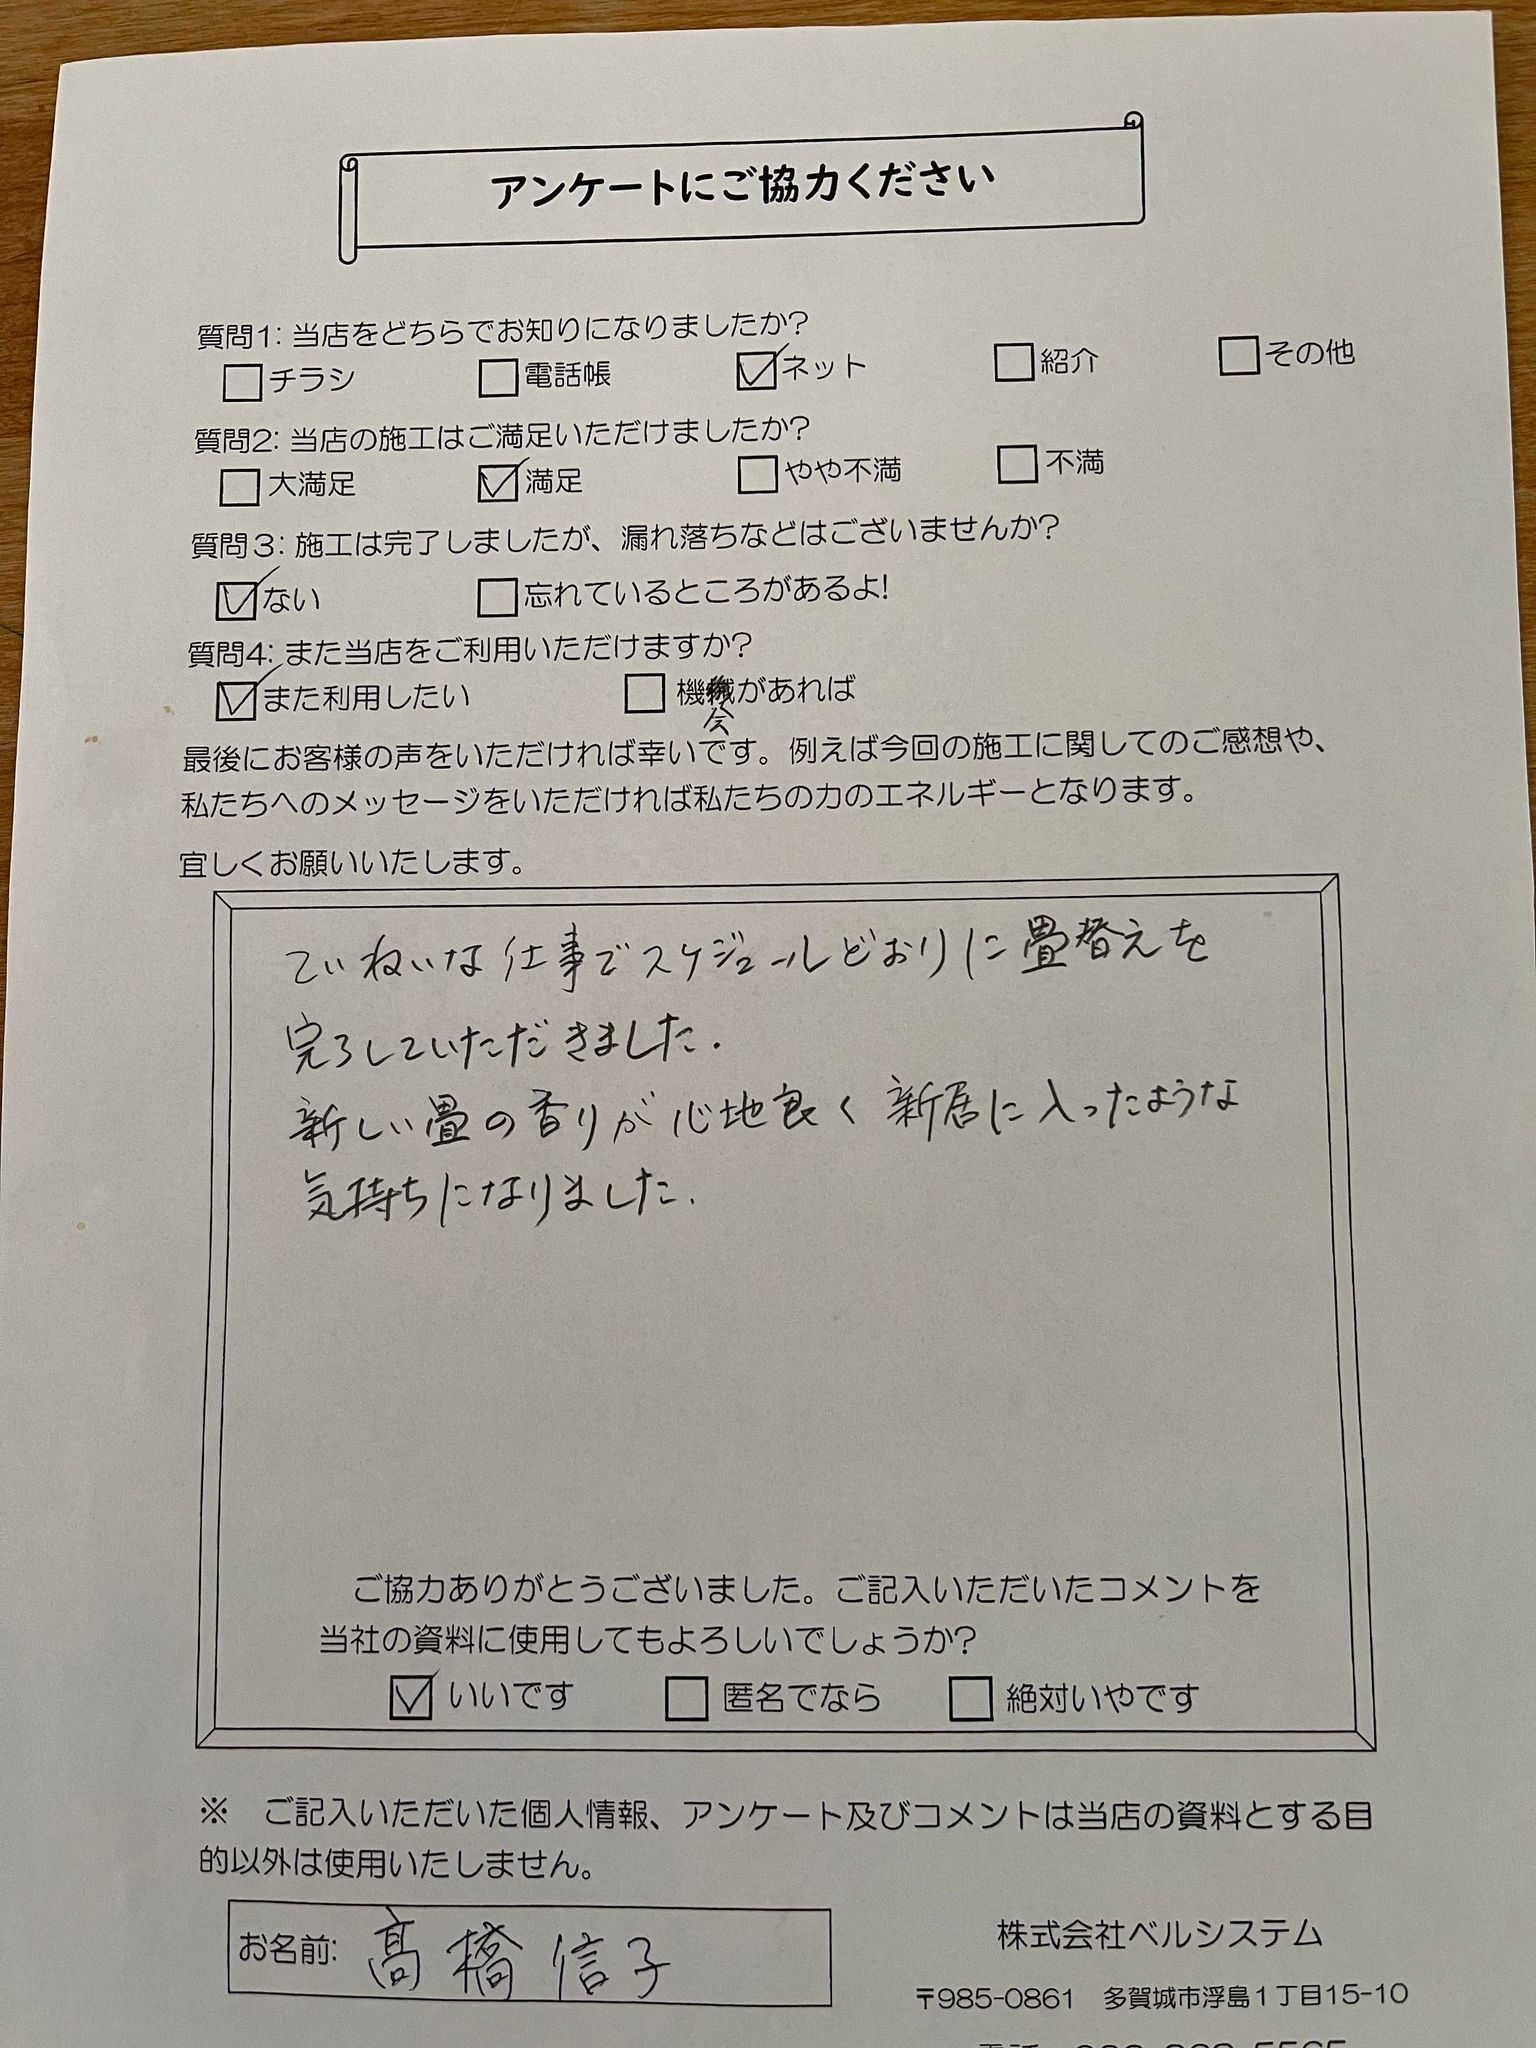 アンケートにご協力ください
質問1: 当店をどちらでお知りになりましたか?
□チラシ □電話帳 ☑ネット □紹介 □その他
質問2: 当店の施工はご満足いただけましたか?
□大満足 ☑満足 □やや不満 □不満
質問3: 施工は完了しましたが、漏れ落ちなどはございませんか?
☑ない □忘れているところがあるよ!
質問4: また当店をご利用いただけますか?
☑また利用したい □機械があれば
会
最後にお客様の声をいただければ幸いです。例えば今回の施工に関してのご感想や、
私たちへのメッセージをいただければ私たちの力のエネルギーとなります。
宜しくお願いいたします。
ていねいな仕事でスケジュールどおりに畳替えを
完了していただきました.
新しい畳の香りが心地良く新居に入ったような
気持ちになりました.
ご協力ありがとうございました。ご記入いただいたコメントを
当社の資料に使用してもよろしいでしょうか?
☑いいです □匿名でなら □絶対いやです
※ ご記入いただいた個人情報、アンケート及びコメントは当店の資料とする目
的以外は使用いたしません。
お名前: 髙橋信子
株式会社ベルシステム
〒985-0861 多賀城市浮島1丁目15-10